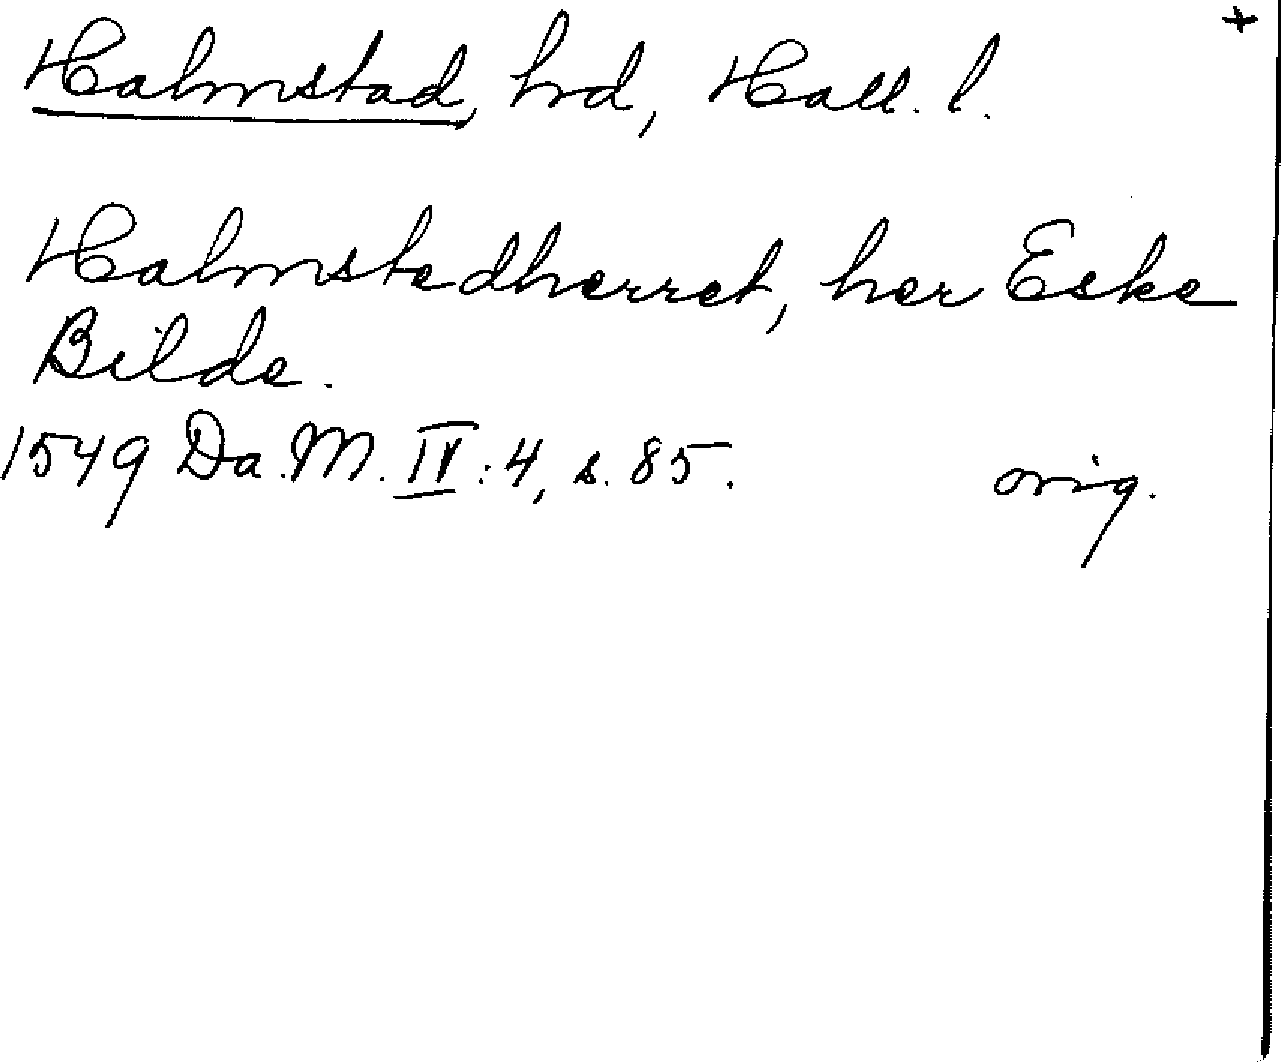 +
Halmstad, hrd, Hall. l.
Halmstedherret, her Eske
Bilde.
1549 Da. M. IV: 4, s. 85. orig.